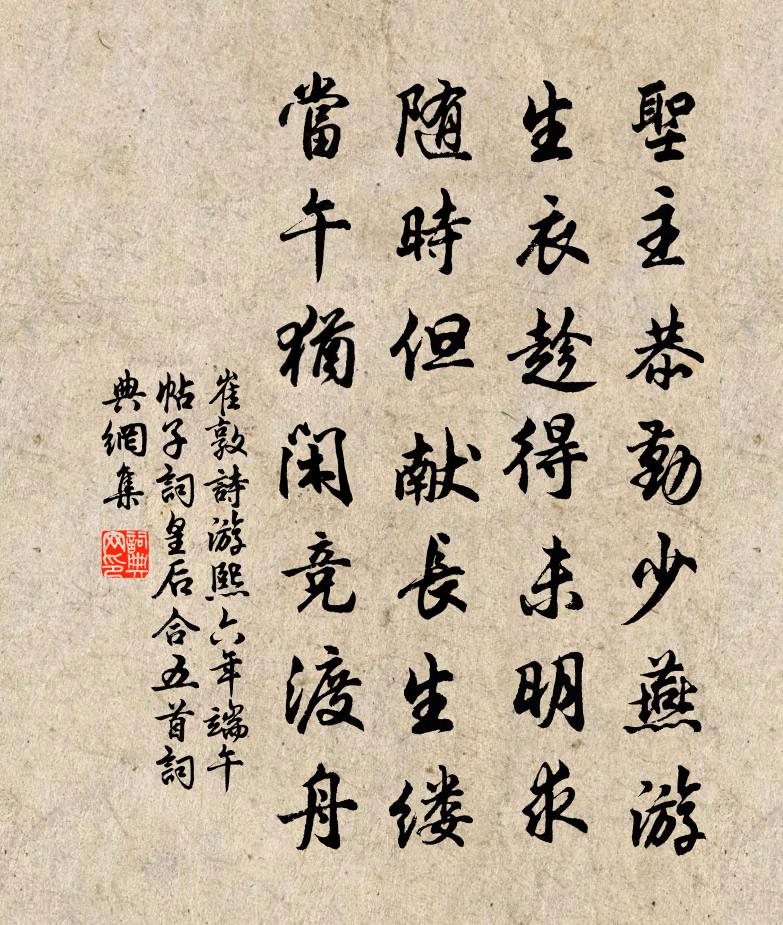 聖主恭勤少燕游
生衣趁得未明求
随時但献長生缕
當午猶閑竞渡舟
崔敦詩游熙六年端午
帖子詞皇后合五首詞
典網集
詞典网印